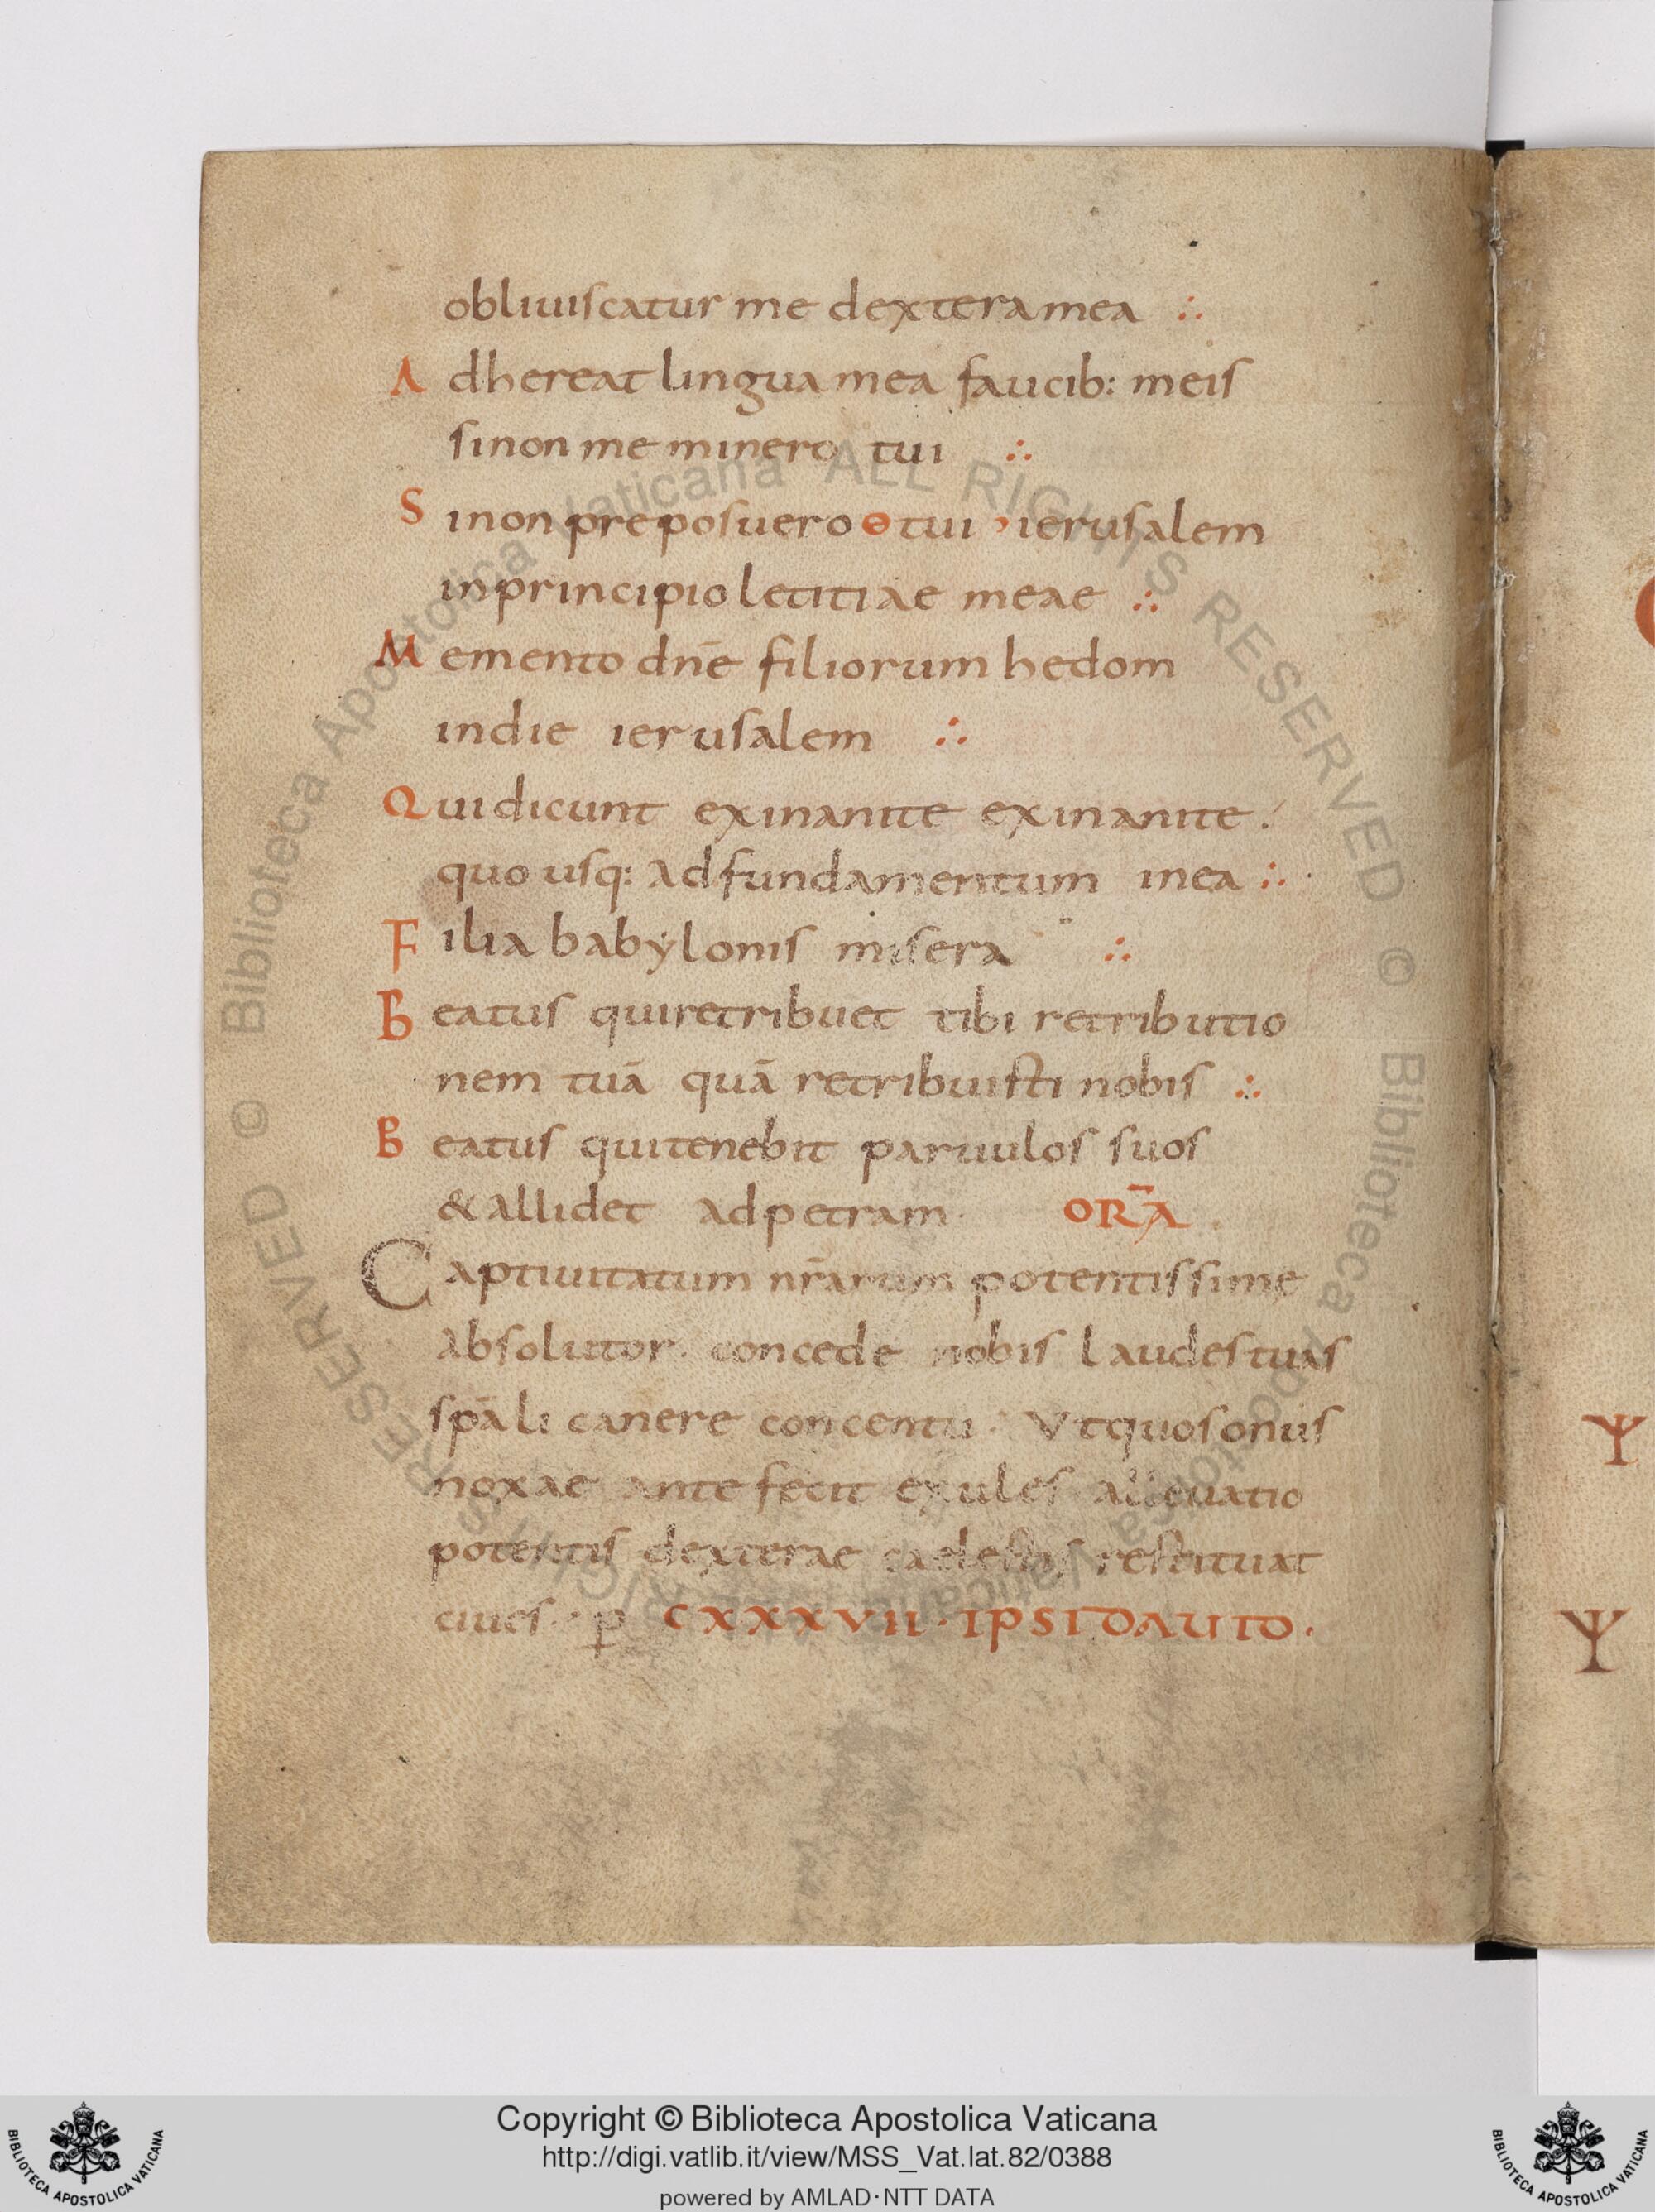 obliuiscatur me dextera mea ∴
Adhereat lingua mea faucib: meis
si non me minero tui ∴
Si non preposuero ɵ tui , ierusalem
in principio letitiae meae ∴
Memento dnē filiorum hedom
in die ierusalem ∴
Qui dicunt exinanite exinanite.
quo usq: ad fundamentum in ea ∴
Filia babylonis misera ∴
Beatus qui retribuet tibi retributio
nem tuā quā retribuisti nobis ∴
Beatus qui tenebit paruulos suos
& allidet ad petram. ORĀ
Captiuitatum nr̄arum potentissime
absolutor. concede nobis laudes tuas
sp̄ali canere concentu. Ut quos onus
noxae ante fecit exules alleuatio
potentis dexterae caelestis restituat
ciues. p̱ CXXXVII. IPSI DAUID.
Ψ
Ψ
© Biblioteca Apostolica Vaticana ALL RIGHTS RESERVED © Biblioteca Apostolica Vaticana ALL RIGHTS RESERVED
BIBLIOTECA APOSTOLICA VATICANA
Copyright © Biblioteca Apostolica Vaticana
http://digi.vatlib.it/view/MSS_Vat.lat.82/0388
powered by AMLAD·NTT DATA
BIBLIOTECA APOSTOLICA VATICANA